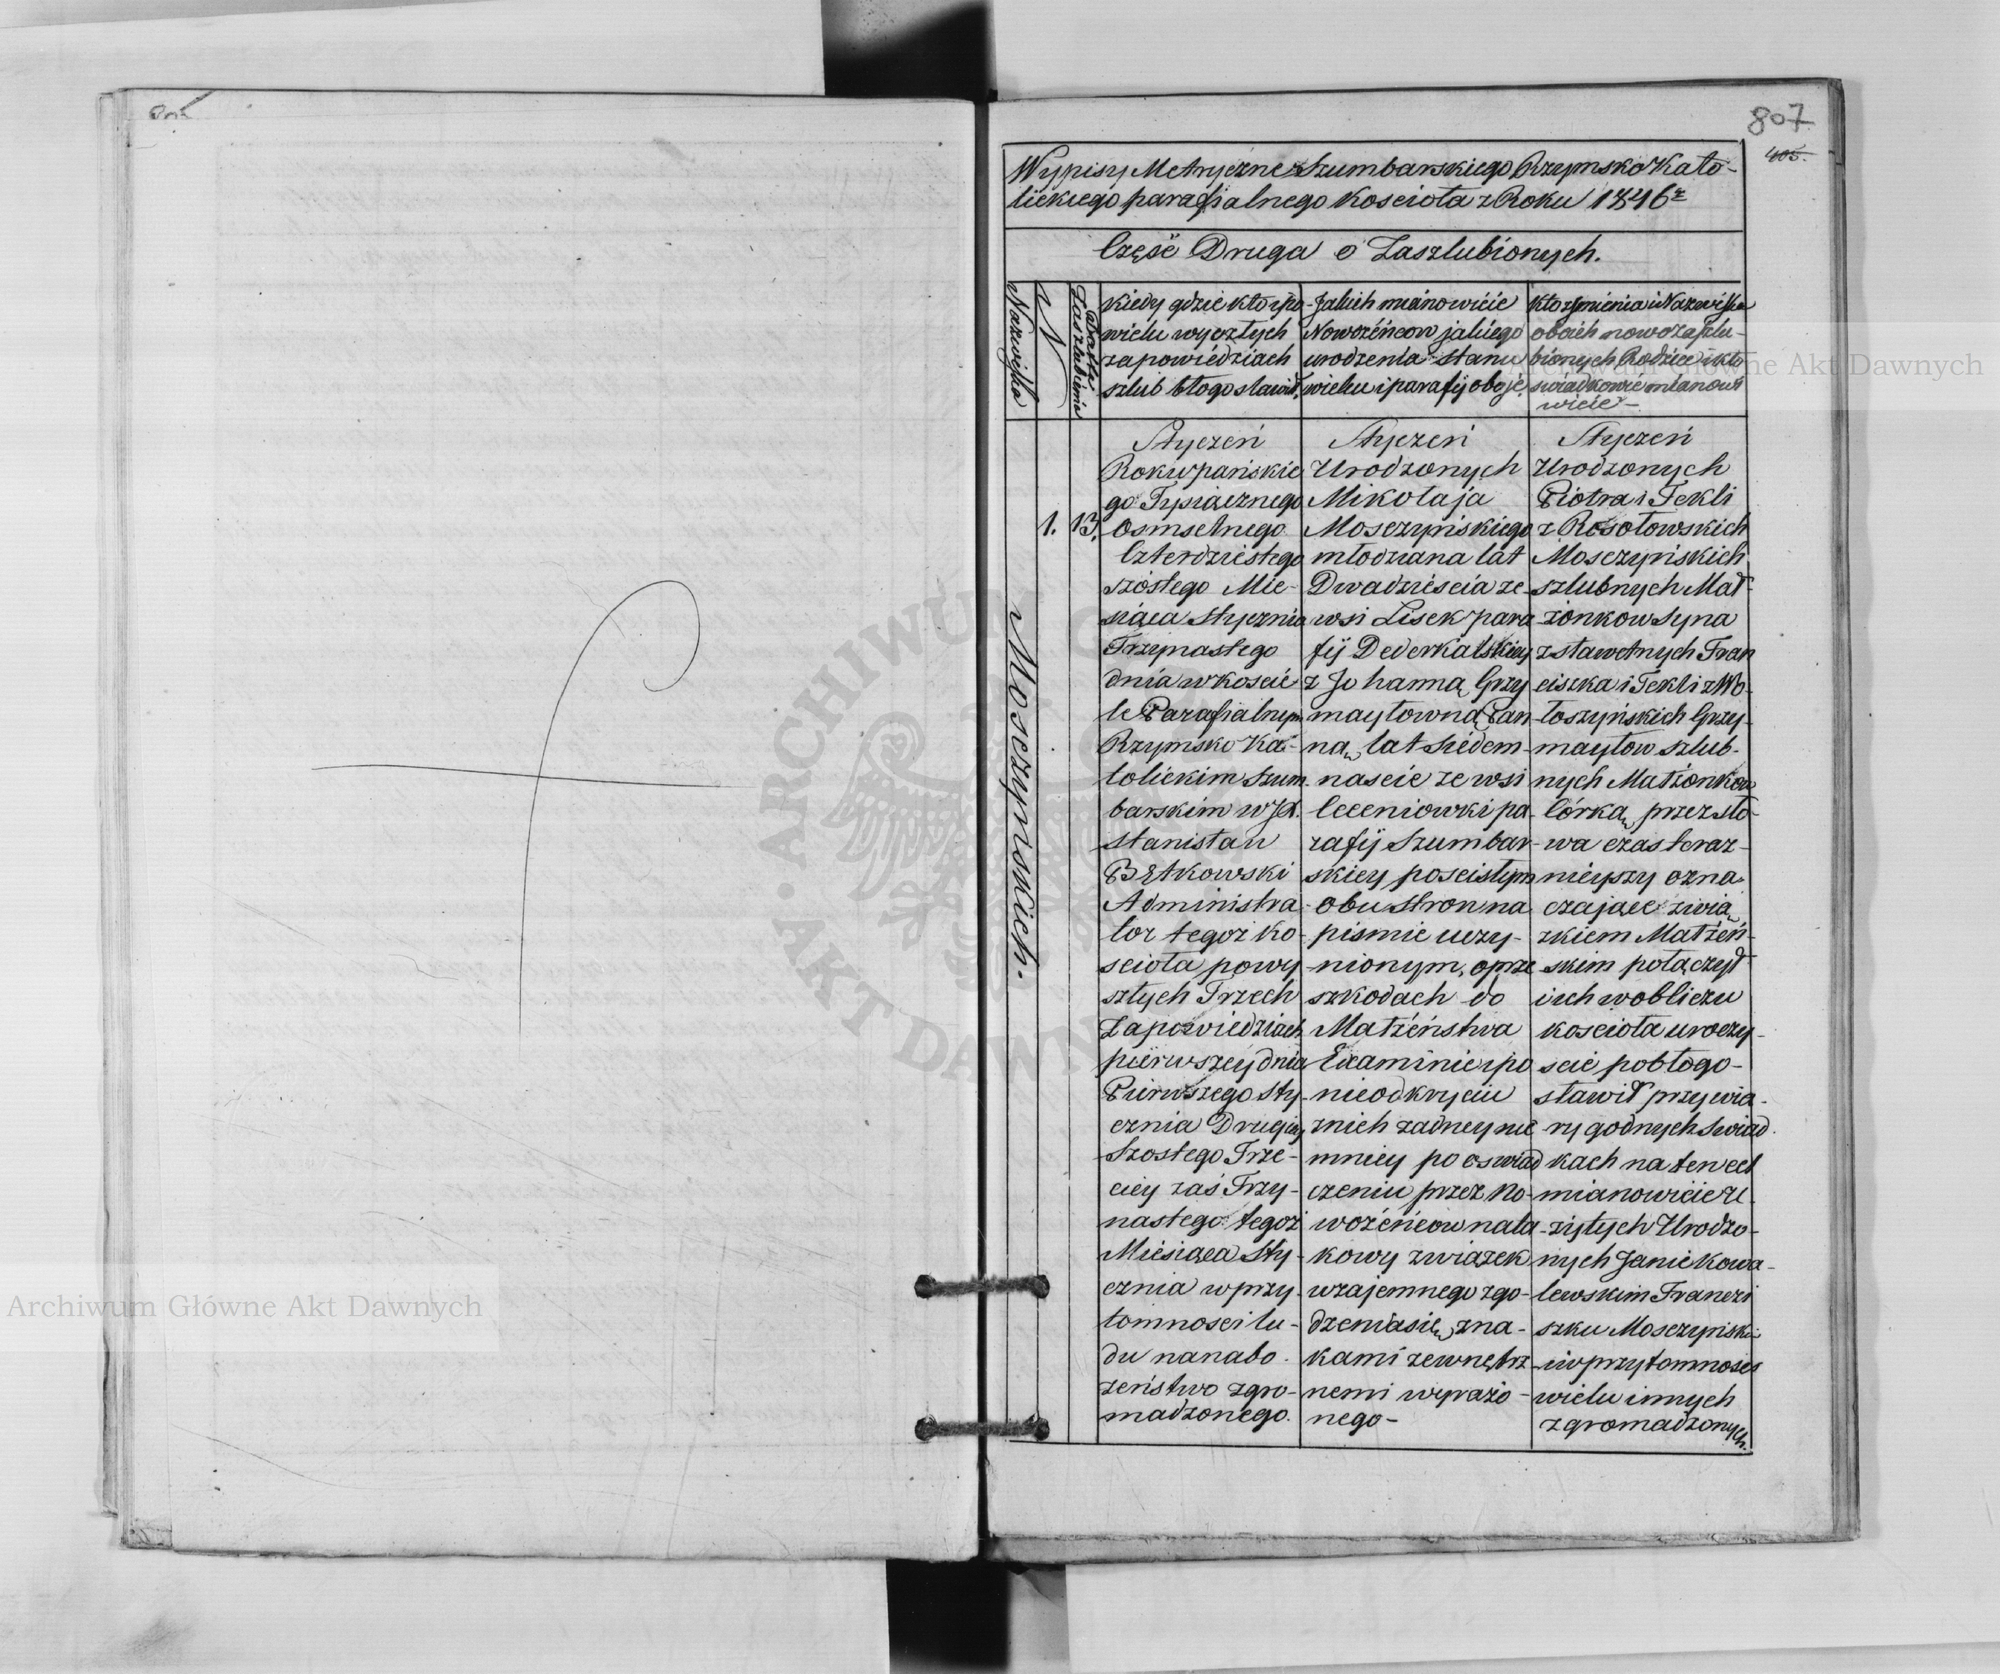 807
405.
Wypisy Metryczne Szumbarskiego Rzymsko Kato-
lickiego parafialnego Koscioła z Roku 1846
Część Druga o Zaszlubionych.
Nazwiska
N
Zaszlubienia
kiedy gdzie kto i po
wielu wyszłych
zapowiédziach
szlub błogosławił,
Jakich mianowicie
Nowożéńcow jakiégo
urodzenia stanu
wieku i parafij oboje,
kto z Jmienia i Nazwiska
oboich nowo zaszlu-
bionych Rodzice i kto
swiadkowie mianow
wicie-
Moszczynskich.
1.
13.
Styczeń
Roku pańskie
go Tysiącznego
Osmsetnego
Czterdziestego
szóstego Mie-
siąca stycznia
Trzynastego
dnia w koscie-
le Parafialnym
Rzymsko Ka-
tolickim Szum-
barskim w JX.
Stanisław
Bętkowski
Administra-
tor tegoż ko-
scioła po wy-
szłych Trzech
Zapowiedziach
piérwszey dnia
Pierwszego sty-
cznia Drugiey
Szostego Trze-
ciey zaś Trzy-
nastego tegoż
Miesiąca Sty-
cznia w przy-
tomnosci lu-
du na nabo-
żeństwo zgro-
madzonego.
Styczeń
Urodzonych
Mikołaja
Moszczyńskiego
młodziana lat
Dwadziescia ze
wsi Lisek para
fij Dederkalskiey
z Johanną Grzy
maytowną Pan-
ną, lat siedem-
nascie ze wsi
Ceceniowki pa-
rafij Szumbar-
skiey po scisłym
obu stron na
pismie uczy-
nionym, o prze
szkodach do
Małżéństwa
Examinie i po
nieodkryciu
z nich żadney nie
mniey po oswiad
czeniu przez No-
wożéńcow nala
kowy związek
wzajemnego zgo-
dzenia się, zna-
kami zewnętrz
nemi wyrażo-
nego-
Styczeń
Urodzonych
Piotra i Tekli
z Rosołowskich
Moszczyńskich
szlubnych Mał-
żonkow Syna
z sławetnych Fran
ciszka i Tekli z Wo-
łoszyńskich Grzy-
maytow szlub-
nych Małżonkow
Córką, przez sło-
wa czas teraz-
nieyszy ozna-
czające zwią-
zkiem Małżeń-
skim połączył
i ich w obliczu
koscioła uroczy-
scie pobłogo-
sławił przy wia-
rygodnych Swiad
kach na ten cel
mianowicie u-
żytych Urodzo-
nych Janie Kowa-
lewskim Franci
szku Moszczyńskim
i w przytomnosci
wielu innych
zgromadzonych.
ARCHIWUM
AKT DAWNYCH
Archiwum Główne Akt Dawnych
Archiwum Główne Akt Dawnych